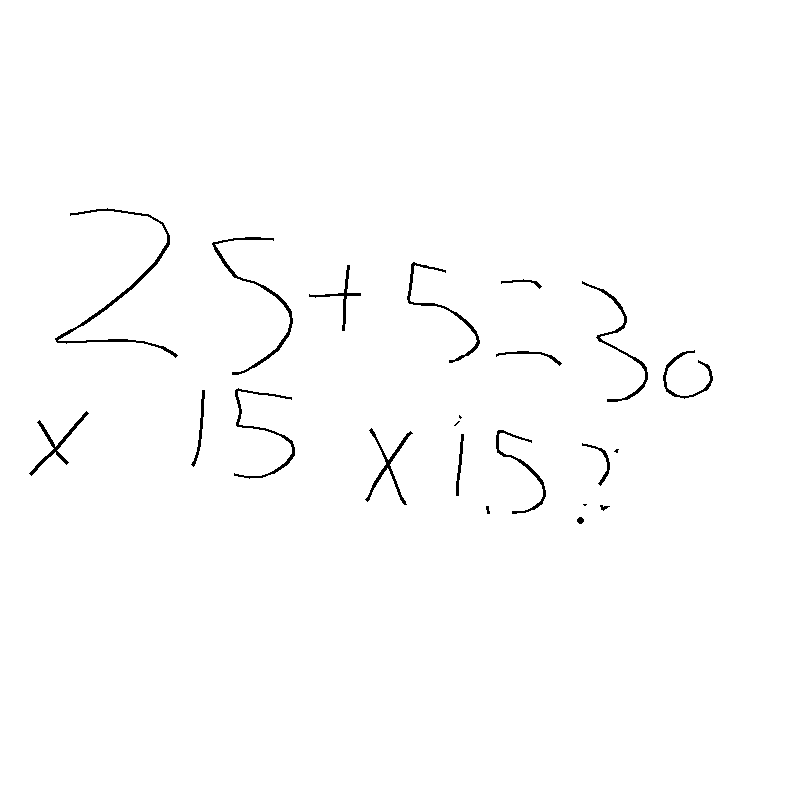 25+5=30
x 15 x 1.5?